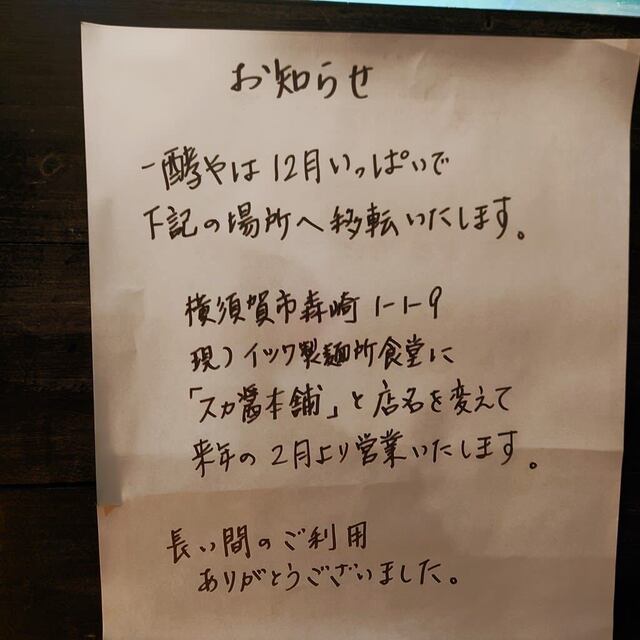 お知らせ
一酵やは12月いっぱいで
下記の場所へ移転いたします。
横須賀市森崎1-1-9
現）イツワ製麺所食堂に
「スカ醤本舗」と店名を変えて
来年の2月より営業いたします。
長い間のご利用
ありがとうございました。